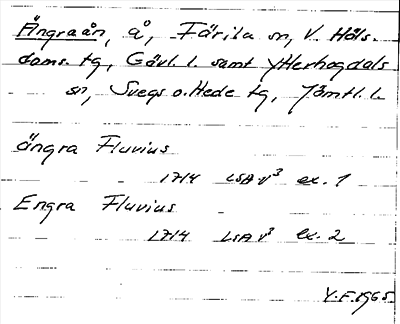 Ängraån, å, Färila sn, V. Häls.
doms. tg, Gävl. l. samt Ytterhogdals
sn, Svegs o. Hede tg, Jämtl. l.
ängra Fluvius
1714 LSA V³ ex. 1
Engra Fluvius
1714 LSA V³ ex. 2
Y.F. 1965